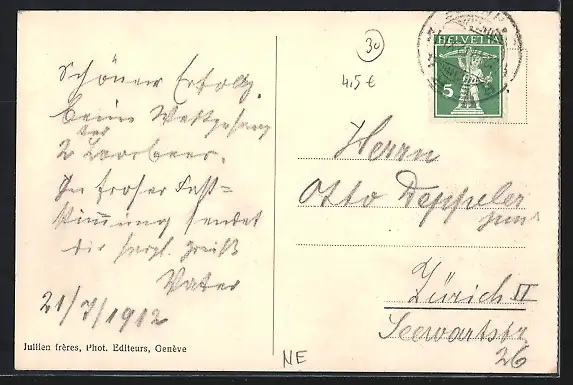 30
4.5 €
HELVETIA
5
Schöner Erfolg.
beim Wettgesang
der
2 Lorbeer.
In froher Fest=
stimmung sendet
dir herzl. Gruß
Vater
21/7/1912
Herrn
Otto Deppeler
jun.
Zürich II
Seewartstr.
26
Jullien frères, Phot. Editeurs, Genève
NE